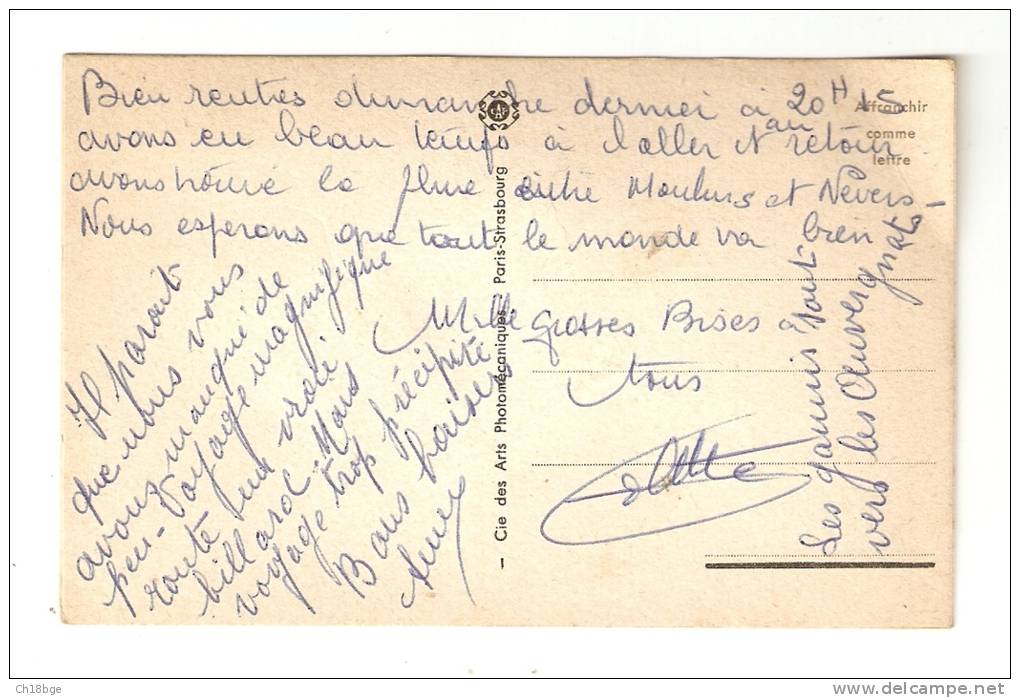 Bien rentrés dimanche dernier à 20H 15
avons eu beau temps à l'aller et au retour
avons trouvé la pluie entre Moulins et Nevers -
Nous esperons que tout le monde va bien
Mille grosses Bises à
tous
Il parait
que nous vous
avons manqué de
peu - Voyage magnifique
route une vraie
billard - Mais
voyage trop précipité
Bons baisers
Les gamins sont
vers les Auvergnats
Affranchir
comme
lettre
— Cie des Arts Photomécaniques — Paris-Strasbourg
CAP
Ch18bge
www.delcampe.net